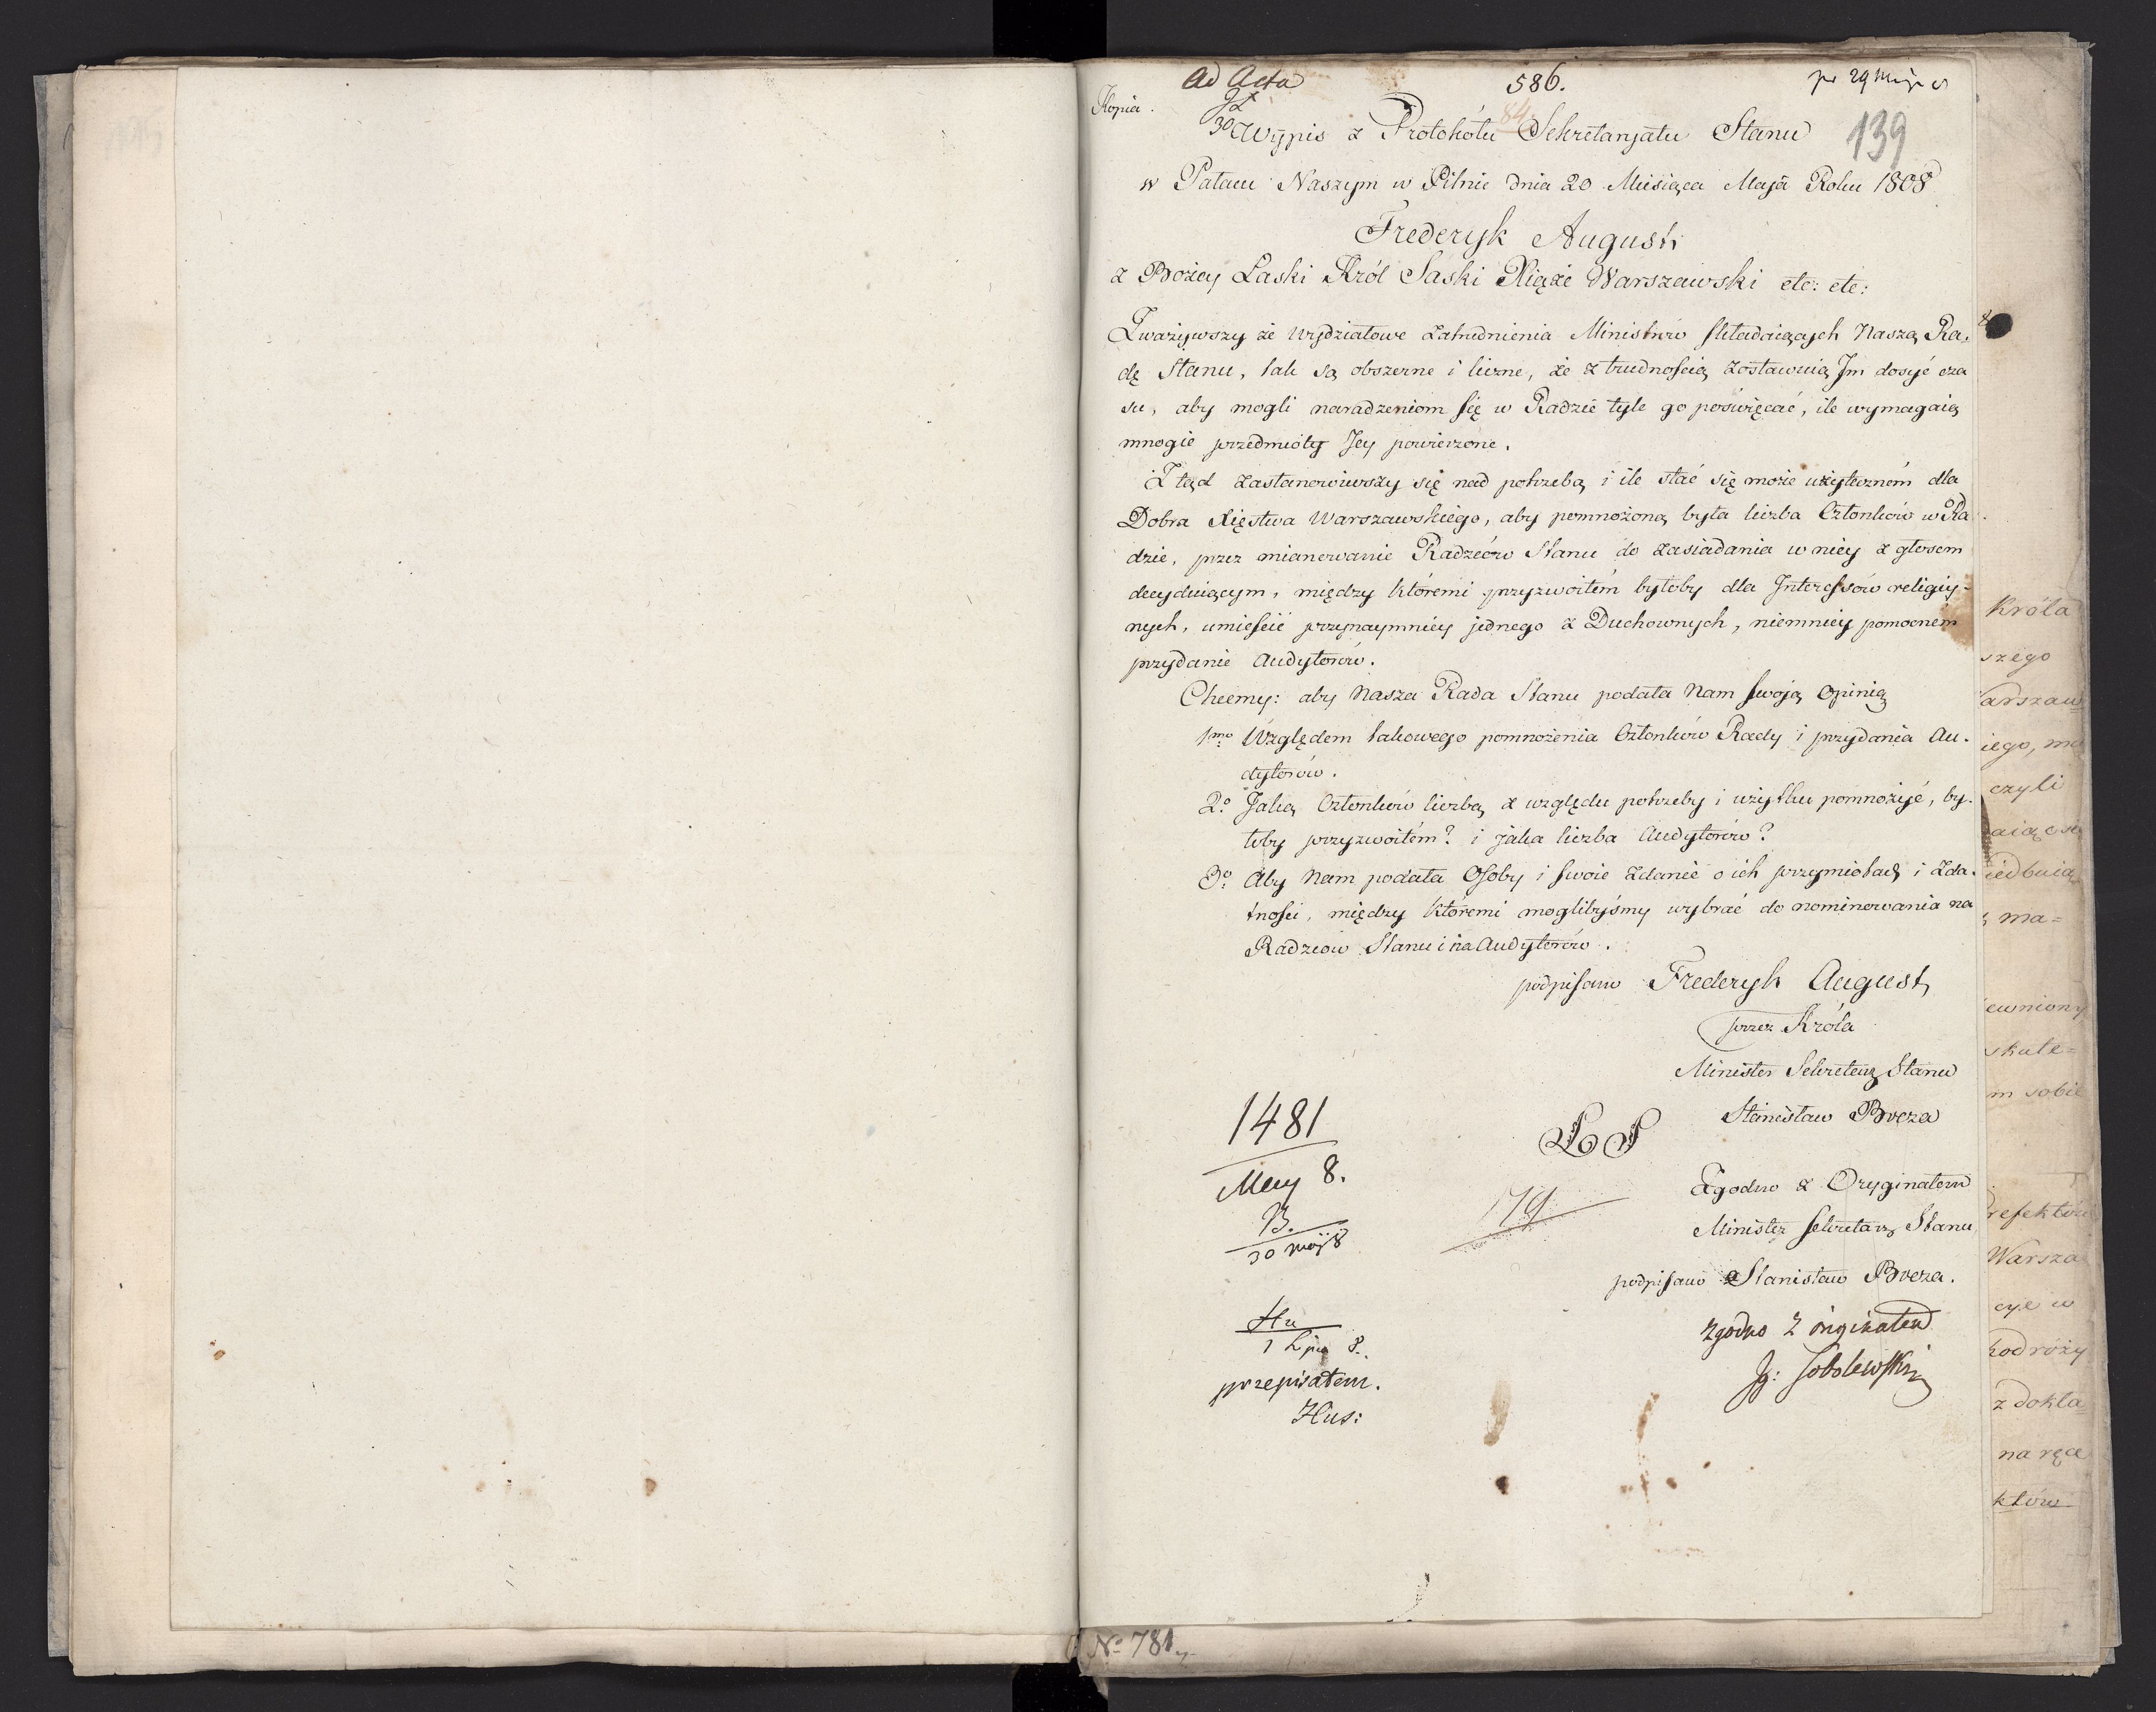 Ad Acta
586.
pr 29 Maja 8
Kopia.
84
30 Wypis z Protokółu Sekretaryatu Stanu
139
w Pałacu Naszym w Pilnic dnia 20 Miesiąca Maja Roku 1808
Frederyk August
z Bożey Łaski Król Saski Xiąże Warszawski etc: etc:
Zważywszy że wydziałowe zatrudnienia Ministrów składaiących Naszą Ra-
dę Stanu, tak są obszerne i liczne, że z trudnością zostawuią Im dosyć cza
su, aby mogli naradzeniom się w Radzie tyle go poświęcać, ile wymagaią
mnogie przedmioty Jey powierzone.
Ztąd zastanowiwszy się nad potrzebą i ile stać się może użytecznem dla
Dobra Xięstwa Warszawskiego, aby pomnożoną była liczba Członków w Ra
dzie, przez mianowanie Radzców Stanu do zasiadania w niey z głosem
decyduiącym, między któremi przyzwoitém byłoby dla Interessów religiy-
nych, umieścić przynaymniey jednego z Duchownych, niemniey pomocnem
przydanie Audytorów.
Chcemy: aby Nasza Rada Stanu podała Nam swoją Opinią
1mo Względem takowego pomnożenia Członków Rady i przydania Au-
dytorów.
2o Jaką Członków liczbą z względu potrzeby i użytku pomnożyć, by-
łoby przyzwoitém? i jaka liczba Audytorów?
3o Aby Nam podała Osoby i swoie zdanie o ich przymiotach i zda-
tności, między któremi moglibyśmy wybrać do nominowania na
Radzców Stanu i na Audytorów.
podpisano Frederyk August
przez Króla
Minister Sekretarz Stanu
Stanisław Breza
1481
May 8.
L S
Zgodno z Oryginałem
179
B.
30 maj 8
Minister Sekretarz Stanu
podpisano Stanisław Breza.
Hu
1 Lip 8.
zgodno z originałem
Ig: Sobolewski
przepisałem.
Hus:
No 781
Króla
szego
arszaw
iego, mo
czyli
aiące się
iedbuią
ma=
ewniony
skute=
m sobie
refektów
Warsza
cye w
podróży
z dokła=
na ręce
któw